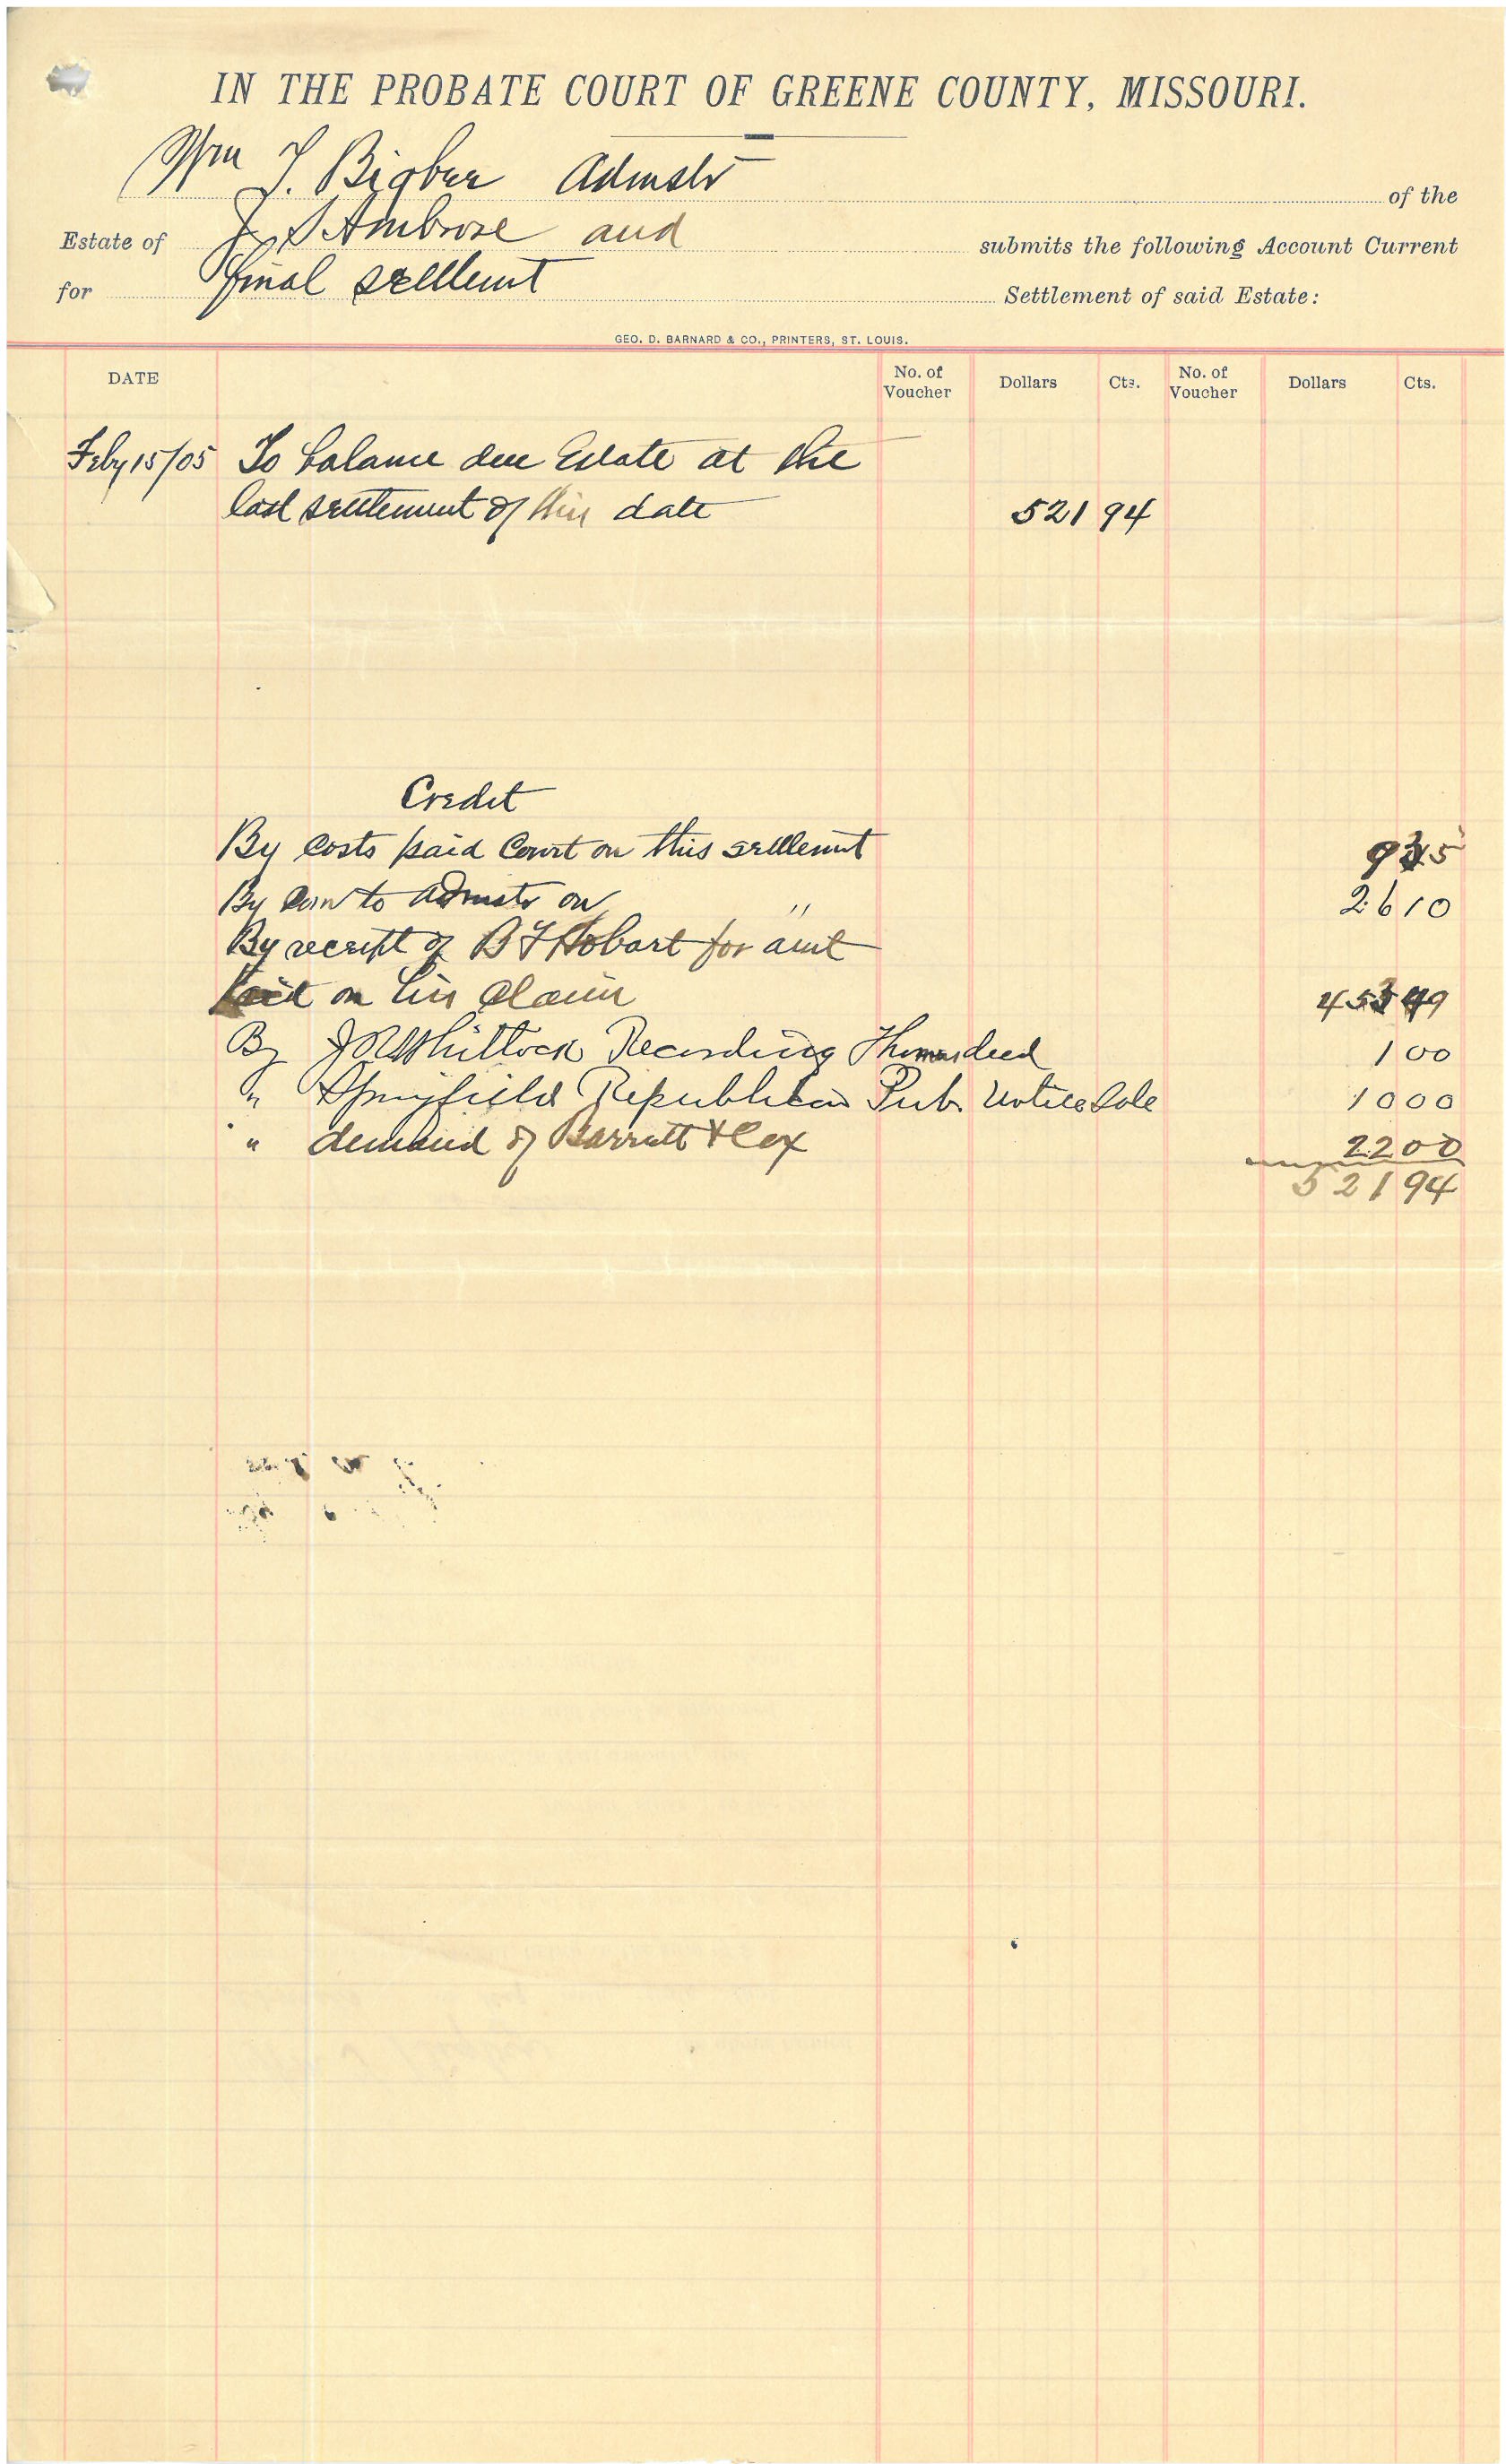 IN THE PROBATE COURT OF GREENE COUNTY, MISSOURI.
Wm T. Bigbee Admstr of the
Estate of J S Ambrose and submits the following Account Current
for final settlemt Settlement of said Estate:
GEO. D. BARNARD & CO., PRINTERS, ST. LOUIS.
DATE No. of Voucher Dollars Cts. No. of Voucher Dollars Cts.
Feby 15/05 To balance due Estate at the
last settlement of this date 521 94
Credit
By Costs paid Court on this settlemt 9 35
By Com to Admstr on " 26 10
By receipt of B F Hobart for amt
on his Claim 453 49
By J R Whitlock Recording deed 1 00
" Springfield Republican Pub. Notice Sale 10 00
" demand of Barrett & Cox 22 00
521 94